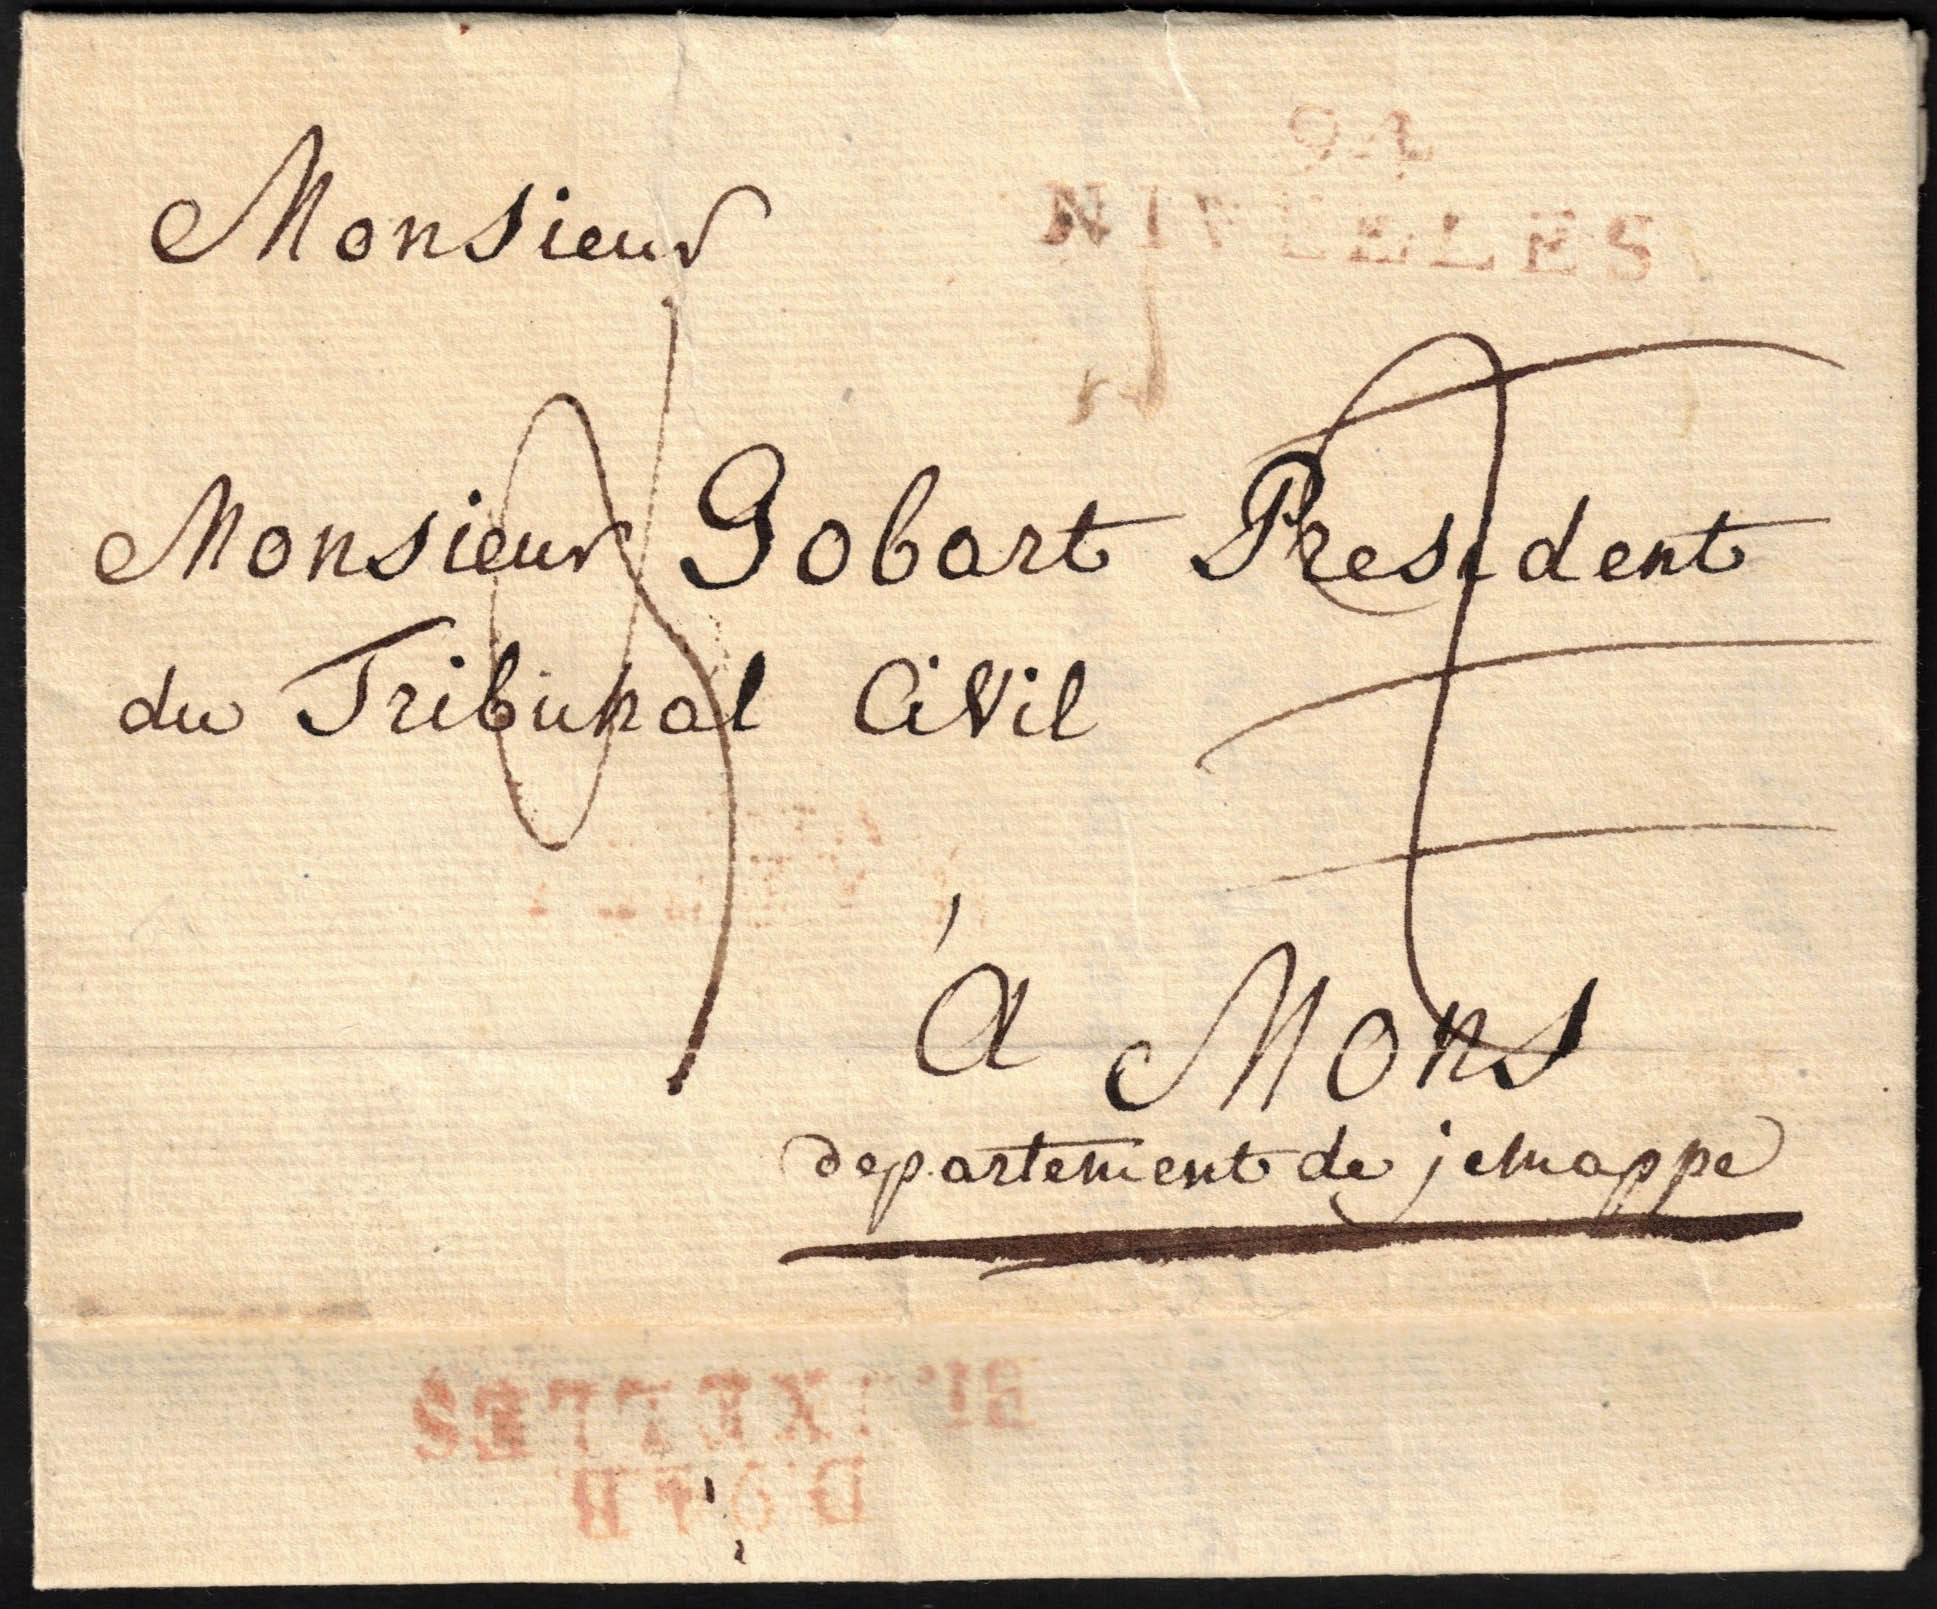 94
NIVELLES
Monsieur
Monsieur Gobart President
du Tribunal Civil
à Mons
departement de jemappe
D94B
BRUXELLES